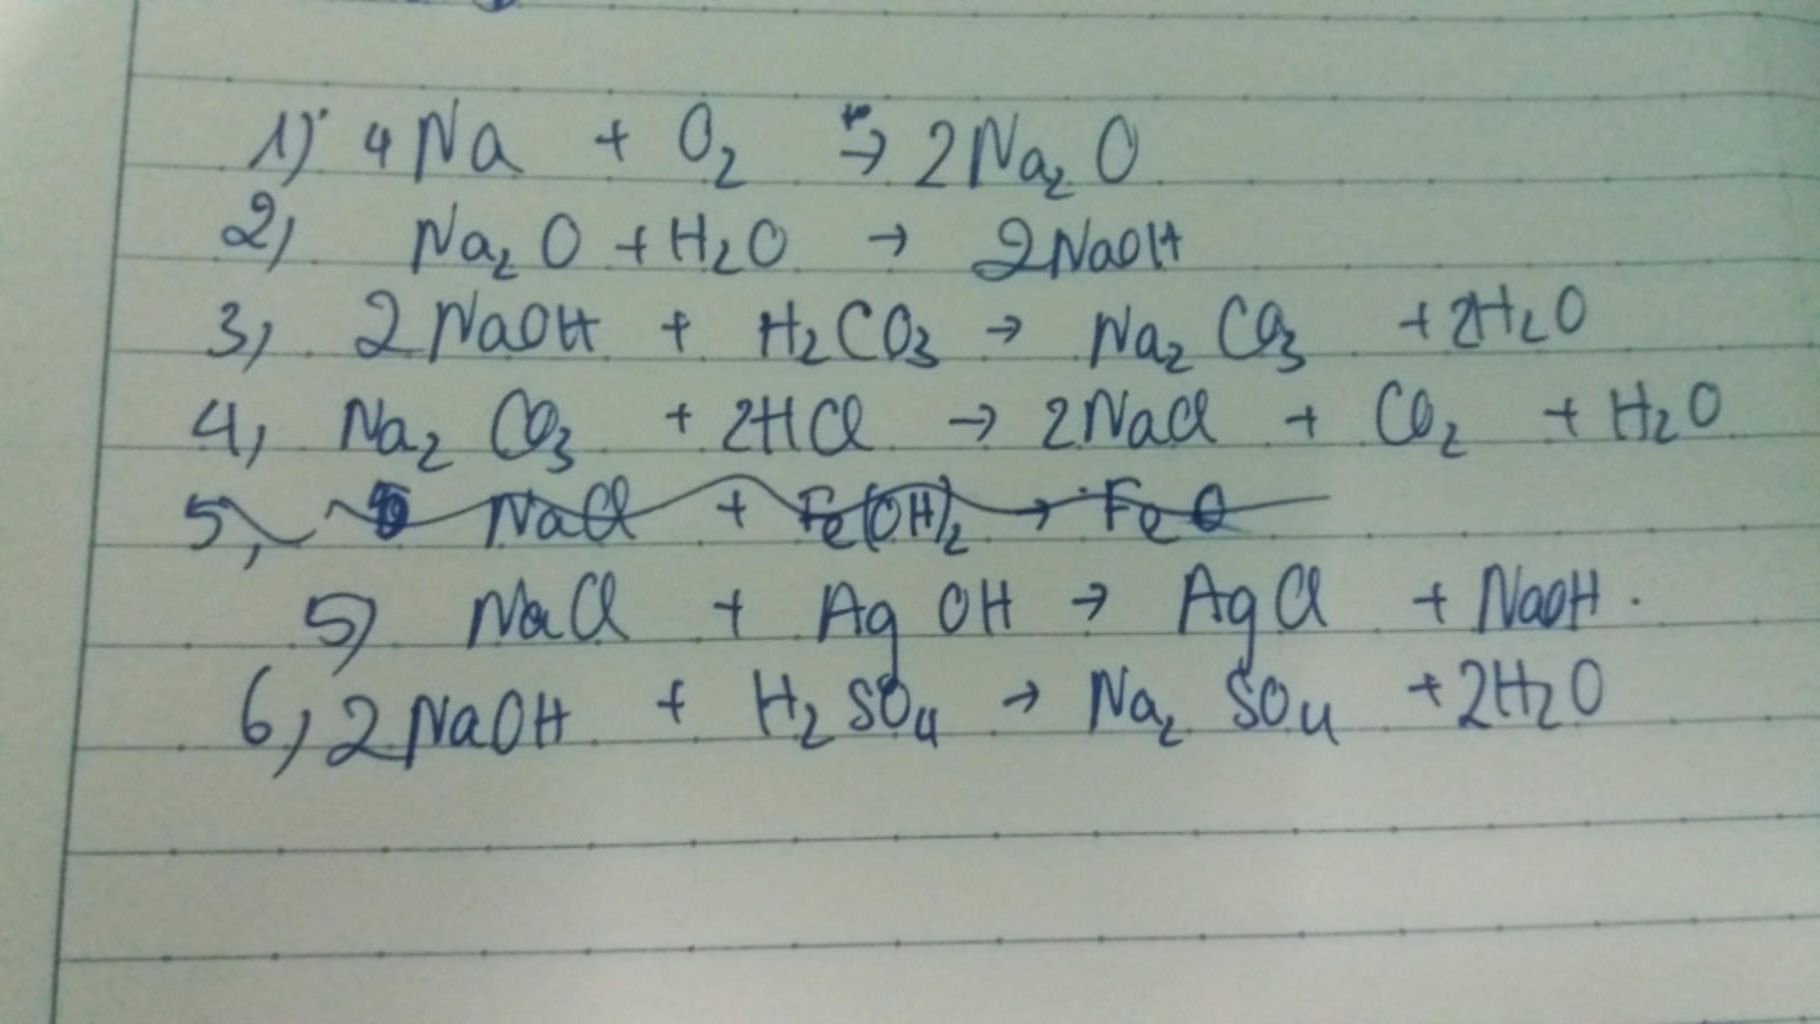 1) 4Na + O₂ t°→ 2Na₂O
2) Na₂O + H₂O → 2NaOH
3) 2NaOH + H₂CO₃ → Na₂CO₃ + 2H₂O
4) Na₂CO₃ + 2HCl → 2NaCl + CO₂ + H₂O
5) NaCl + Fe(OH)₂ → FeO
5) NaCl + AgOH → AgCl + NaOH.
6) 2NaOH + H₂SO₄ → Na₂SO₄ + 2H₂O